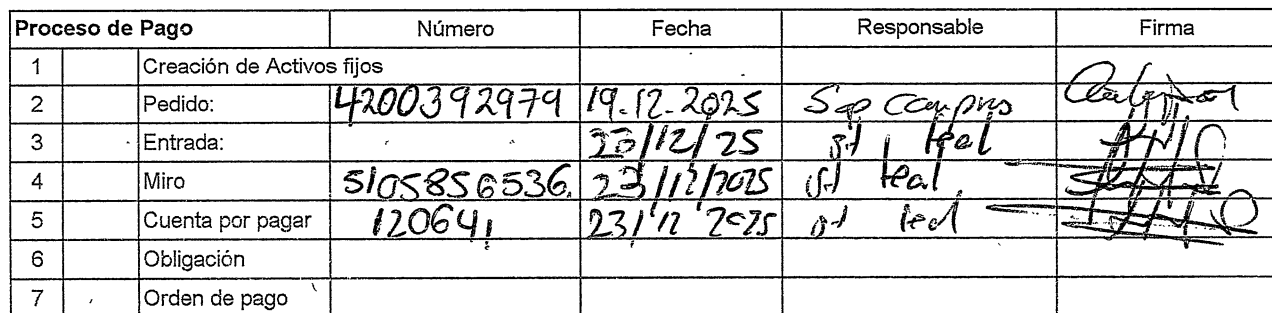 Proceso de Pago Número Fecha Responsable Firma
1 Creación de Activos fijos
2 Pedido: 4200392979 19.12.2025
3 Entrada: 23/12/25
4 Miro 5105856536 23/12/2025
5 Cuenta por pagar 120641 23/12 2025
6 Obligación
7 Orden de pago